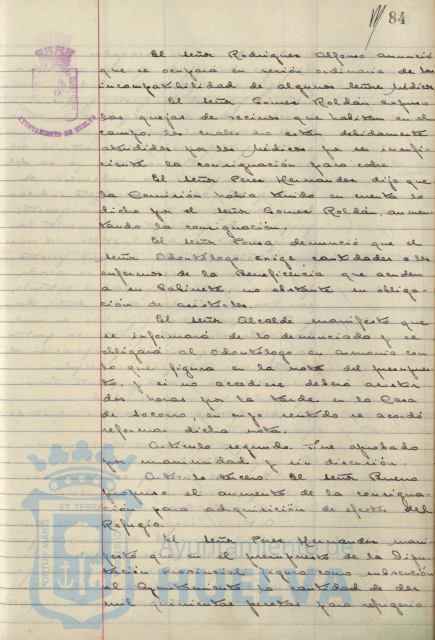 84
El señor Rodriguez Alfonso anunció
que se ocupará en sesión ordinaria de las
incompatibilidad de algunos señores médicos
El señor Gomez Roldán expuso
las quejas de vecinos que habitan en el
campo, los cuales no están debidamente
atendidos por los médicos por ser insufi-
ciente la consignación para coche.
El señor Perez Hernandez dijo que
la Comisión había tenido en cuenta lo
dicho por el señor Gomez Roldán, aumen-
tando la consignación.
El señor Ponsa denunció que el
señor Odontólogo exige cantidades a los
enfermos de la Beneficencia que acuden
a su Gabinete, no obstante su obliga-
ción de asistirles.
El señor Alcalde manifestó que
se informará de lo denunciado y se
obligará al Odontólogo en armonía con
lo que figura en la nota del presupues-
to, y si no accediese deberá asistir
dos horas por la tarde en la Casa
de Socorro, en cuyo sentido se acordó
reformar dicha nota.
Artículo segundo. Fue aprobado
por unanimidad y sin discusión.
Artículo tercero. El señor Bueno
propuso el aumento de la consigna-
ción para adquisición de efectos del
Refugio.
El señor Perez Hernandez mani-
festó que en el presupuesto de la Dipu-
tación Provincial figura como subvención
al Ayuntamiento la cantidad de dos
mil quinientas pesetas para refugeria
AYUNTAMIENTO DE HUELVA
PORTUS MARIS ET TERRAE
Ayuntamiento de
HUELVA